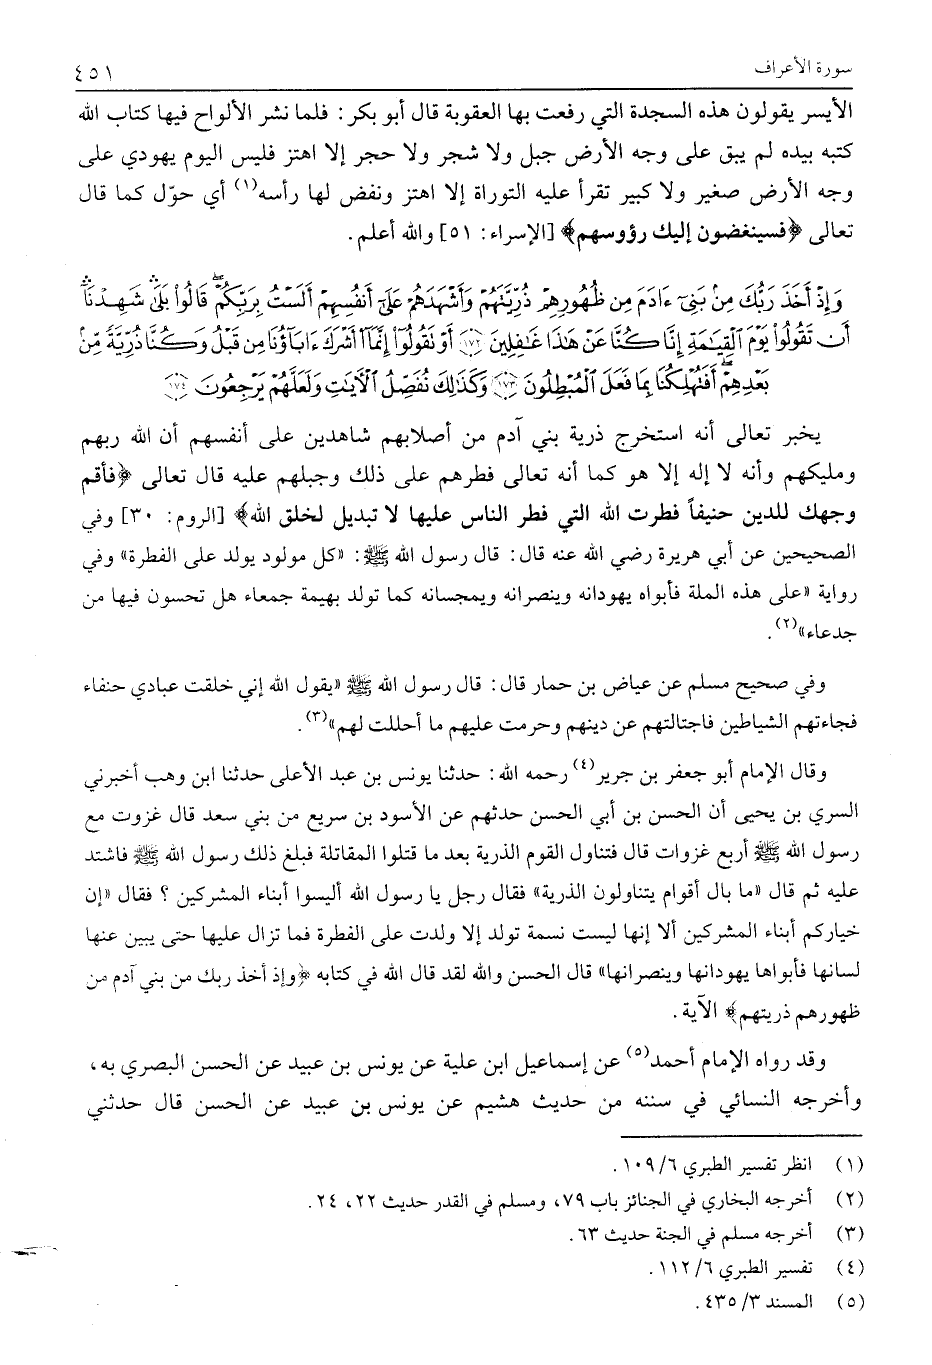 سورة الأعراف ٤٥١
الأيسر يقولون هذه السجدة التي رفعت بها العقوبة قال أبو بكر: فلما نشر الألواح فيها كتاب الله
كتبه بيده لم يبق على وجه الأرض جبل ولا شجر ولا حجر إلا اهتز فليس اليوم يهودي على
وجه الأرض صغير ولا كبير تقرأ عليه التوراة إلا اهتز ونفض لها رأسه(١) أي حوّل كما قال
تعالى ﴿فسينغضون إليك رؤوسهم﴾ [الإسراء: ٥١] والله أعلم.
وَإِذْ أَخَذَ رَبُّكَ مِنۢ بَنِىٓ ءَادَمَ مِن ظُهُورِهِمْ ذُرِّيَّتَهُمْ وَأَشْهَدَهُمْ عَلَىٰٓ أَنفُسِهِمْ أَلَسْتُ بِرَبِّكُمْ ۖ قَالُوا۟ بَلَىٰ ۛ شَهِدْنَآ ۛ
أَن تَقُولُوا۟ يَوْمَ ٱلْقِيَـٰمَةِ إِنَّا كُنَّا عَنْ هَـٰذَا غَـٰفِلِينَ ﴿١٧٢﴾ أَوْ تَقُولُوٓا۟ إِنَّمَآ أَشْرَكَ ءَابَآؤُنَا مِن قَبْلُ وَكُنَّا ذُرِّيَّةً مِّنۢ
بَعْدِهِمْ ۖ أَفَتُهْلِكُنَا بِمَا فَعَلَ ٱلْمُبْطِلُونَ ﴿١٧٣﴾ وَكَذَٰلِكَ نُفَصِّلُ ٱلْـَٔايَـٰتِ وَلَعَلَّهُمْ يَرْجِعُونَ ﴿١٧٤﴾
يخبر تعالى أنه استخرج ذرية بني آدم من أصلابهم شاهدين على أنفسهم أن الله ربهم
ومليكهم وأنه لا إله إلا هو كما أنه تعالى فطرهم على ذلك وجبلهم عليه قال تعالى ﴿فأقم
وجهك للدين حنيفاً فطرت الله التي فطر الناس عليها لا تبديل لخلق الله﴾ [الروم: ٣٠] وفي
الصحيحين عن أبي هريرة رضي الله عنه قال: قال رسول الله ﷺ: «كل مولود يولد على الفطرة» وفي
رواية «على هذه الملة فأبواه يهودانه وينصرانه ويمجسانه كما تولد بهيمة جمعاء هل تحسون فيها من
جدعاء»(٢).
وفي صحيح مسلم عن عياض بن حمار قال: قال رسول الله ﷺ «يقول الله إني خلقت عبادي حنفاء
فجاءتهم الشياطين فاجتالتهم عن دينهم وحرمت عليهم ما أحللت لهم»(٣).
وقال الإمام أبو جعفر بن جرير(٤) رحمه الله: حدثنا يونس بن عبد الأعلى حدثنا ابن وهب أخبرني
السري بن يحيى أن الحسن بن أبي الحسن حدثهم عن الأسود بن سريع من بني سعد قال غزوت مع
رسول الله ﷺ أربع غزوات قال فتناول القوم الذرية بعد ما قتلوا المقاتلة فبلغ ذلك رسول الله ﷺ فاشتد
عليه ثم قال «ما بال أقوام يتناولون الذرية» فقال رجل يا رسول الله أليسوا أبناء المشركين ؟ فقال «إن
خياركم أبناء المشركين ألا إنها ليست نسمة تولد إلا ولدت على الفطرة فما تزال عليها حتى يبين عنها
لسانها فأبواها يهودانها وينصرانها» قال الحسن والله لقد قال الله في كتابه ﴿وإذ أخذ ربك من بني آدم من
ظهورهم ذريتهم﴾ الآية.
وقد رواه الإمام أحمد(٥) عن إسماعيل ابن علية عن يونس بن عبيد عن الحسن البصري به،
وأخرجه النسائي في سننه من حديث هشيم عن يونس بن عبيد عن الحسن قال حدثني
(١) انظر تفسير الطبري ٦/ ١٠٩.
(٢) أخرجه البخاري في الجنائز باب ٧٩، ومسلم في القدر حديث ٢٢، ٢٤.
(٣) أخرجه مسلم في الجنة حديث ٦٣.
(٤) تفسير الطبري ٦/ ١١٢.
(٥) المسند ٣/ ٤٣٥.